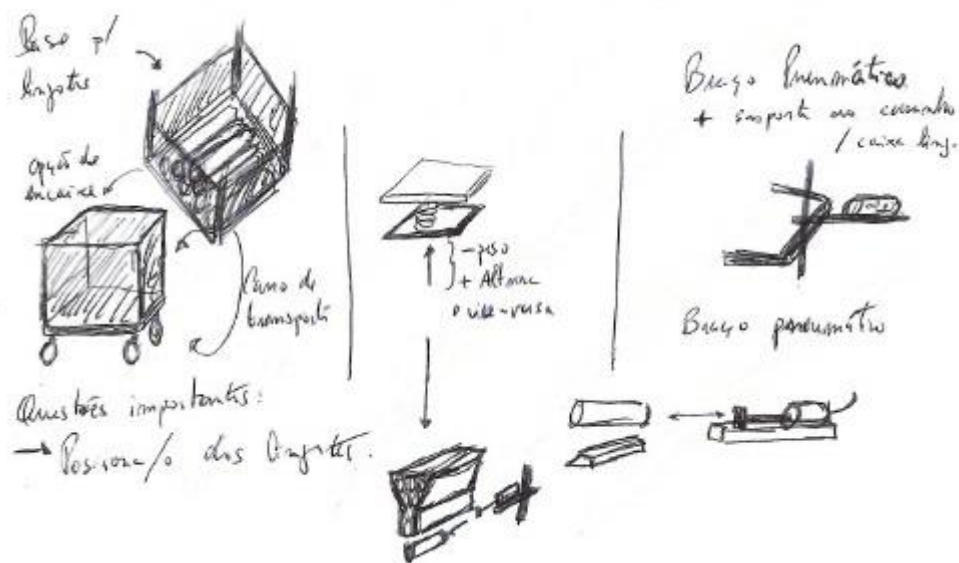 Base p/
lingotes
opção de
encaixe
Carro de
transporte
Questões importantes:
→ Posiciona/o dos lingotes.
- peso
+ Altura
e vice-versa
Braço Pneumático
+ suporte ao caminho
/ caixa ling.
Braço pneumático